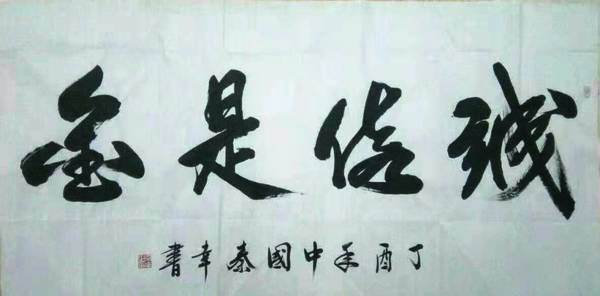 誠信是金
丁酉年中國秦幸書